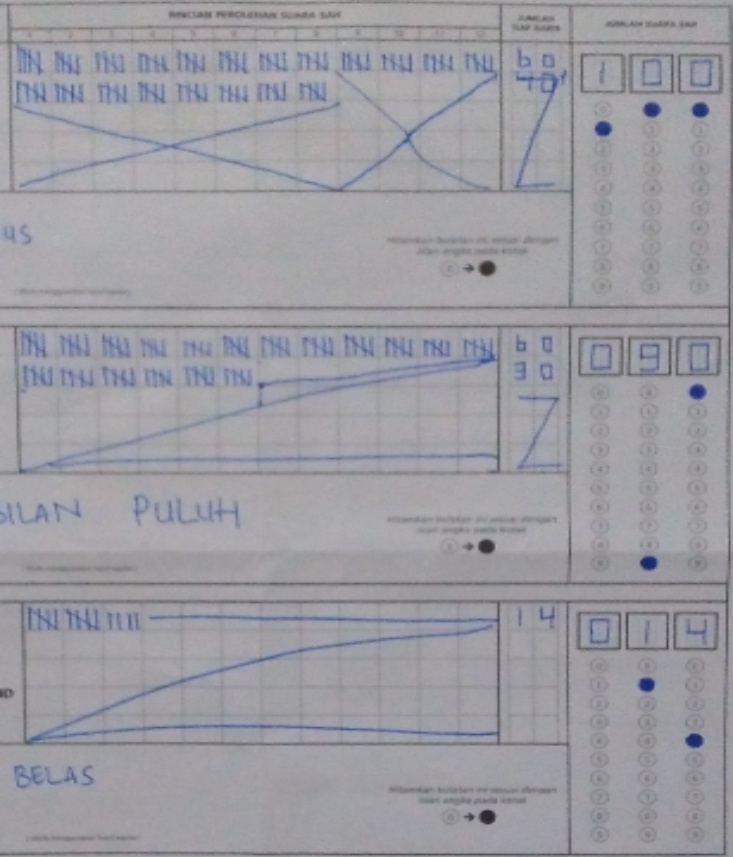 RINCIAN PEROLEHAN SUARA SAH
JUMLAH TIAP BARIS
JUMLAH SUARA SAH
1 2 3 4 5 6 7 8 9 10 11 12
60
40
1 0 0
US
Hitamkan bulatan ini sesuai dengan
isian angka pada kotak
60
30
0 9 0
BILAN PULUH
Hitamkan bulatan ini sesuai dengan
isian angka pada kotak
14
0 1 4
BELAS
Hitamkan bulatan ini sesuai dengan
isian angka pada kotak